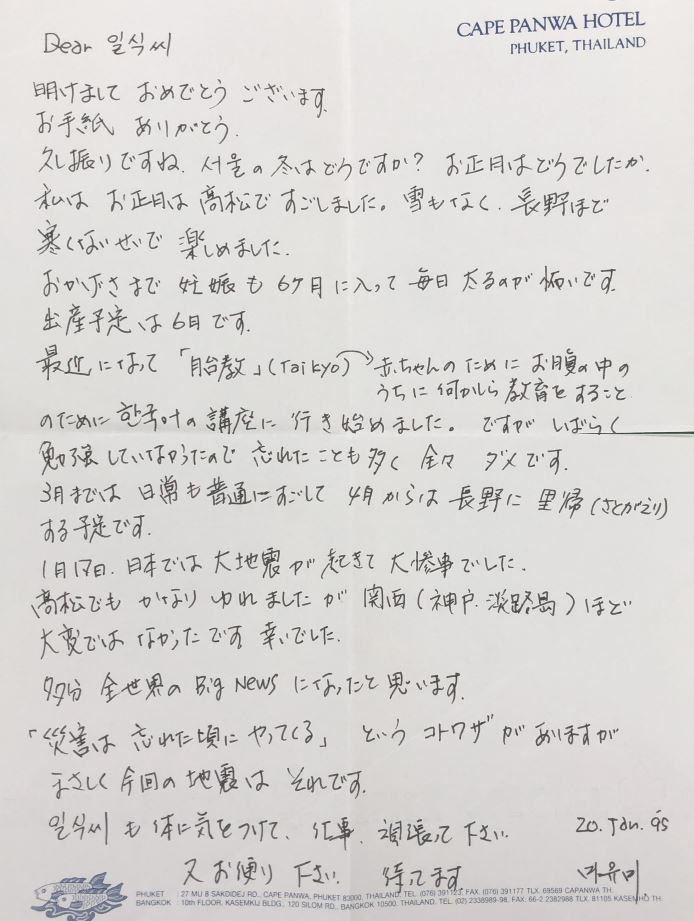 CAPE PANWA HOTEL
PHUKET, THAILAND
Dear 일식씨
明けまして おめでとう ございます.
お手紙 ありがとう.
久し振りですね. 서울の冬はどうですか? お正月はどうでしたか.
私は お正月は 高松で すごしました。雪もなく. 長野ほど
寒くないせいで 楽しめました.
おかげさまで 妊娠も 6ヶ月に入って 毎日 太るのが 怖いです.
出産予定は6日です.
最近になって 「胎教」(Taikyo) 赤ちゃんのために お腹の中の
うちに 何かしら 教育をすること
のために 한국어の講座に 行き始めました。ですが しばらく
勉強していなかったので 忘れたことも多く 全々 ダメです.
3月までは 日常も普通にすごして 4月からは 長野に 里帰(さとがえり)
する予定です.
1月17日. 日本では 大地震が 起きて 大惨事でした.
高松でも かなり ゆれましたが 関西(神戸. 淡路島)ほど
大変では なかったです 幸いでした.
多分 全世界の Big News になったと思います.
「災害は 忘れた頃に やってくる」 という コトワザ がありますが
まさしく 今回の 地震は それです.
일식씨 も 体に気をつけて、仕事. 頑張って 下さい. 20. Jan. 95
又 お便り 下さい. 待てます.
PHUKET : 27 MU 8 SAKDIDEJ RD., CAPE PANWA, PHUKET 83000, THAILAND. TEL. (076) 391123, FAX. (076) 391177 TLX. 69569 CAPANWA TH.
BANGKOK : 10th FLOOR, KASEMKIJ BLDG., 120 SILOM RD., BANGKOK 10500, THAILAND. TEL. (02) 2338989-98. FAX. 66-2 2382988 TLX. 81105 KASEMHO TH.